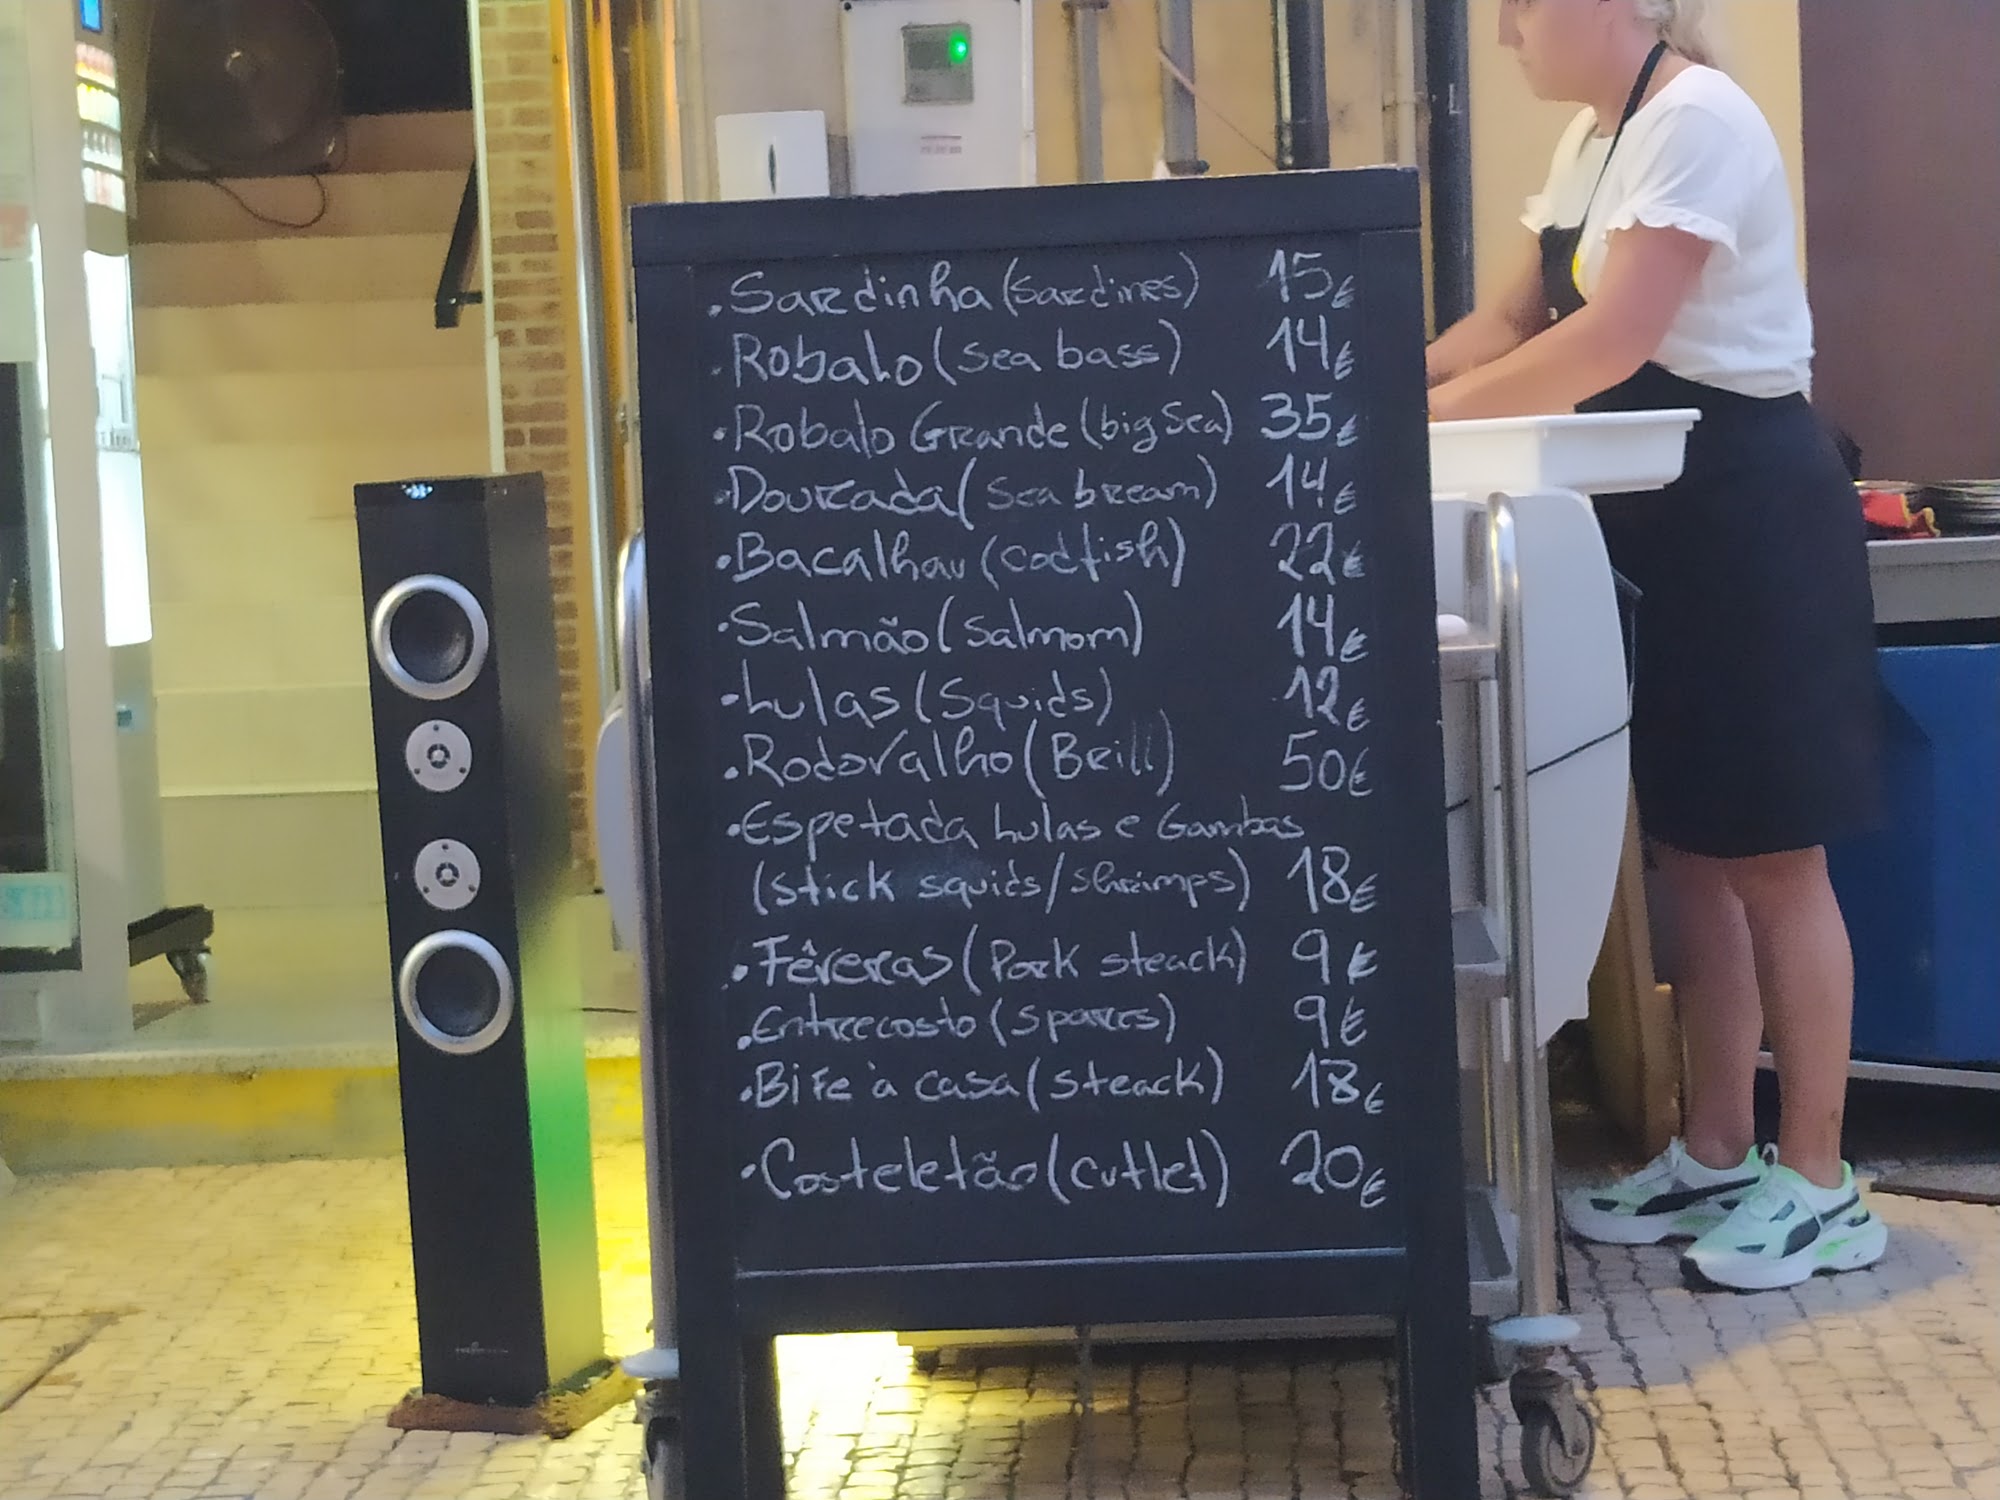 .Sardinha (Sardines) 15€
.Robalo (Sea bass) 14€
.Robalo Grande (big Sea) 35€
.Dourada (Sea bream) 14€
.Bacalhau (codfish) 22€
.Salmão (Salmom) 14€
.Lulas (Squids) 12€
.Rodovalho (Brill) 50€
.Espetada Lulas e Gambas
(stick squids/shrimps) 18€
.Fêveras (Pork steack) 9€
.Entrecosto (Spares) 9€
.Bife à casa (steack) 18€
.Costeletão (cutlet) 20€